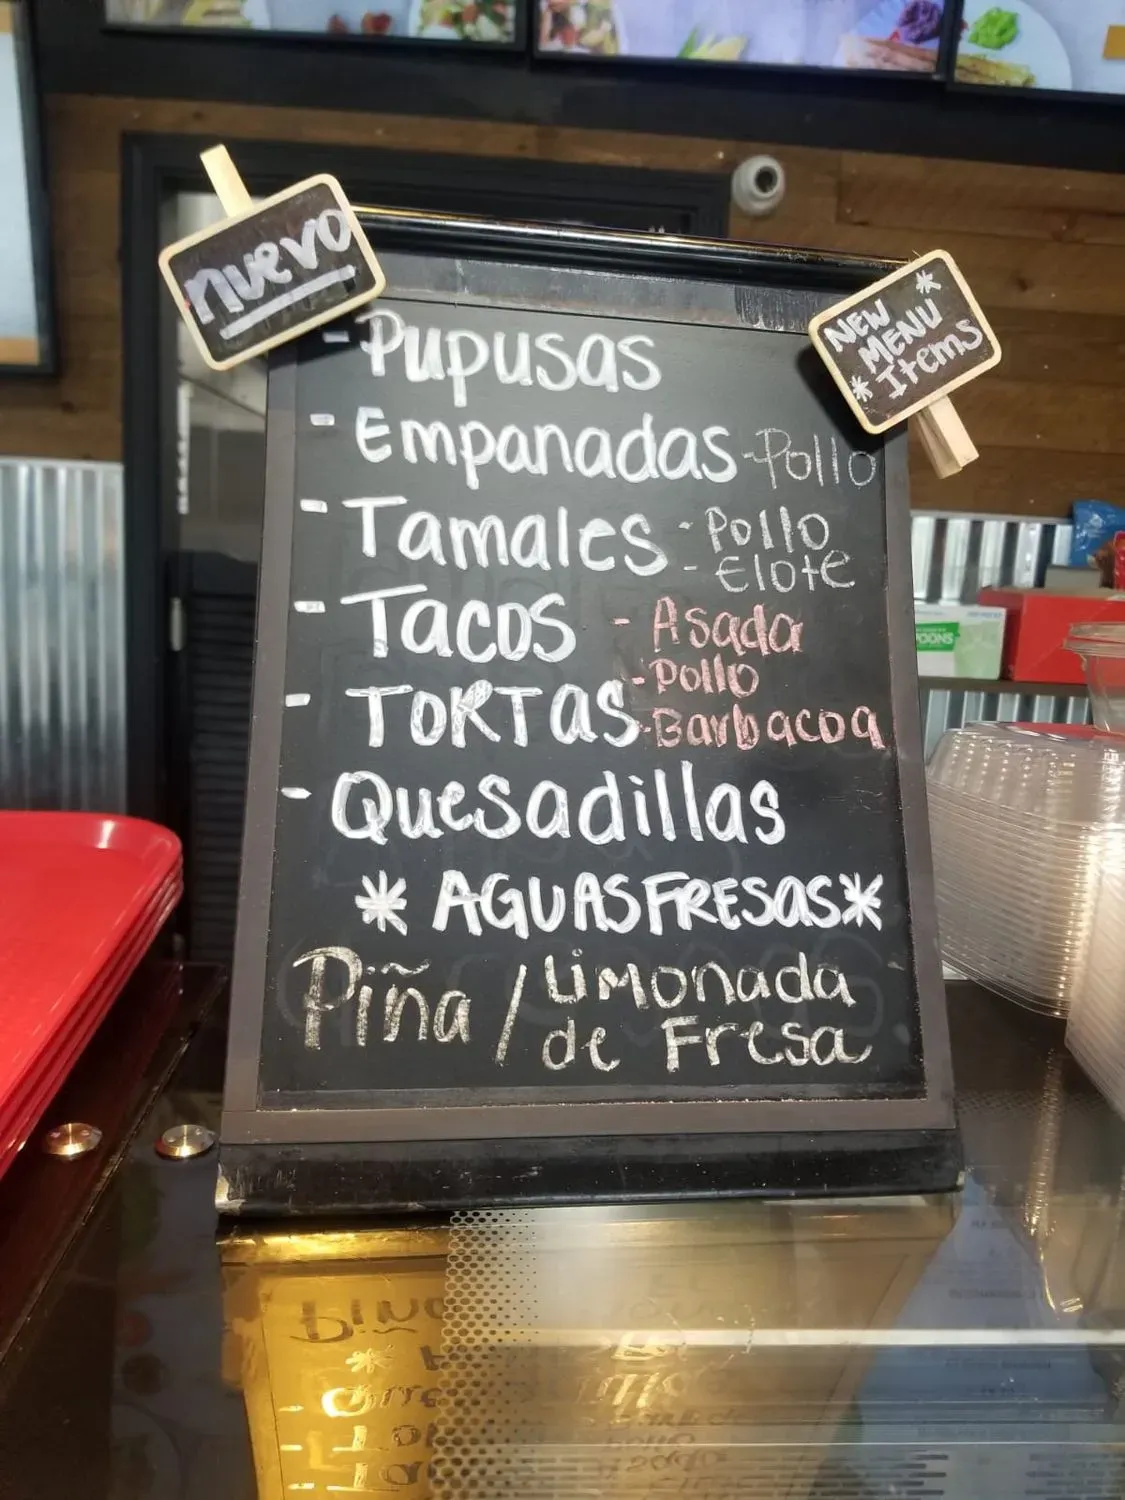 nuevo
*
NEW
MENU
* Items
- Pupusas
- Empanadas - Pollo
- Tamales - Pollo
- Elote
- Tacos - Asada
- Pollo
- TORTAS - Barbacoa
- Quesadillas
* AGUAS FRESAS *
Piña / Limonada
de Fresa
OONS